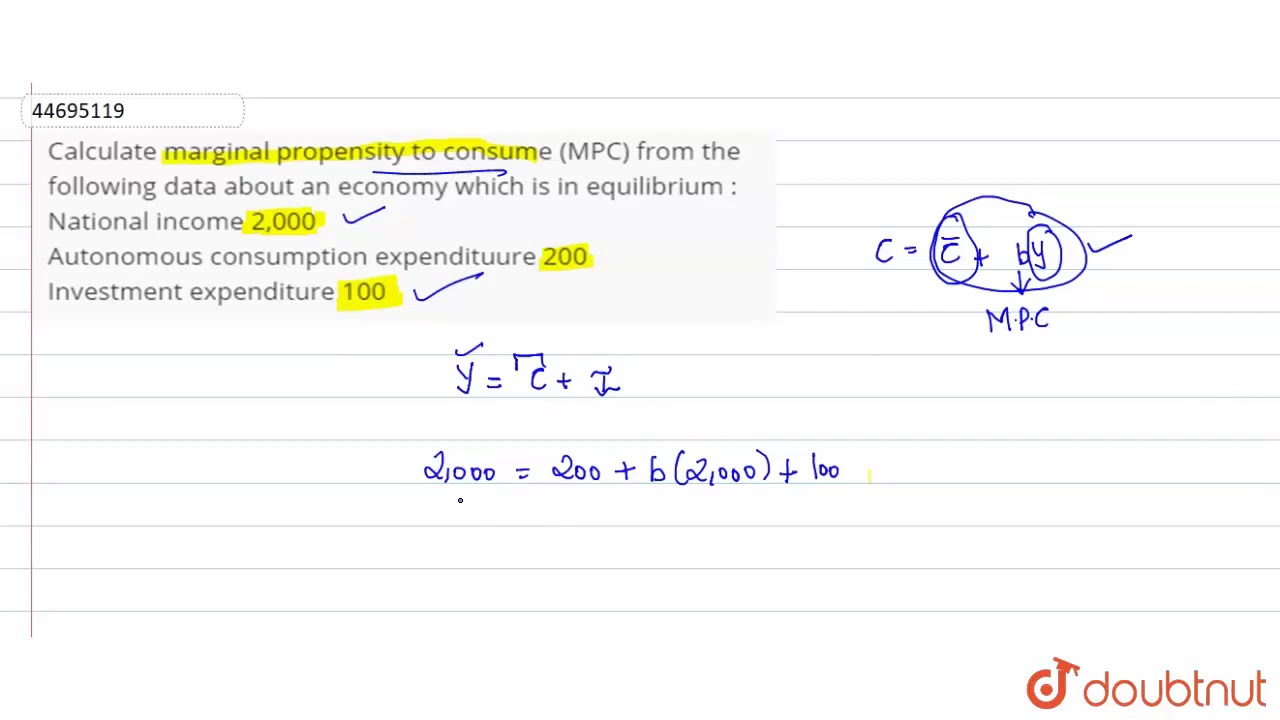 44695119
Calculate marginal propensity to consume (MPC) from the
following data about an economy which is in equilibrium :
National income 2,000
Autonomous consumption expendituure 200
Investment expenditure 100
C = C̅ + by
M.P.C
y = C + I
2,000 = 200 + b(2,000) + 100
doubtnut